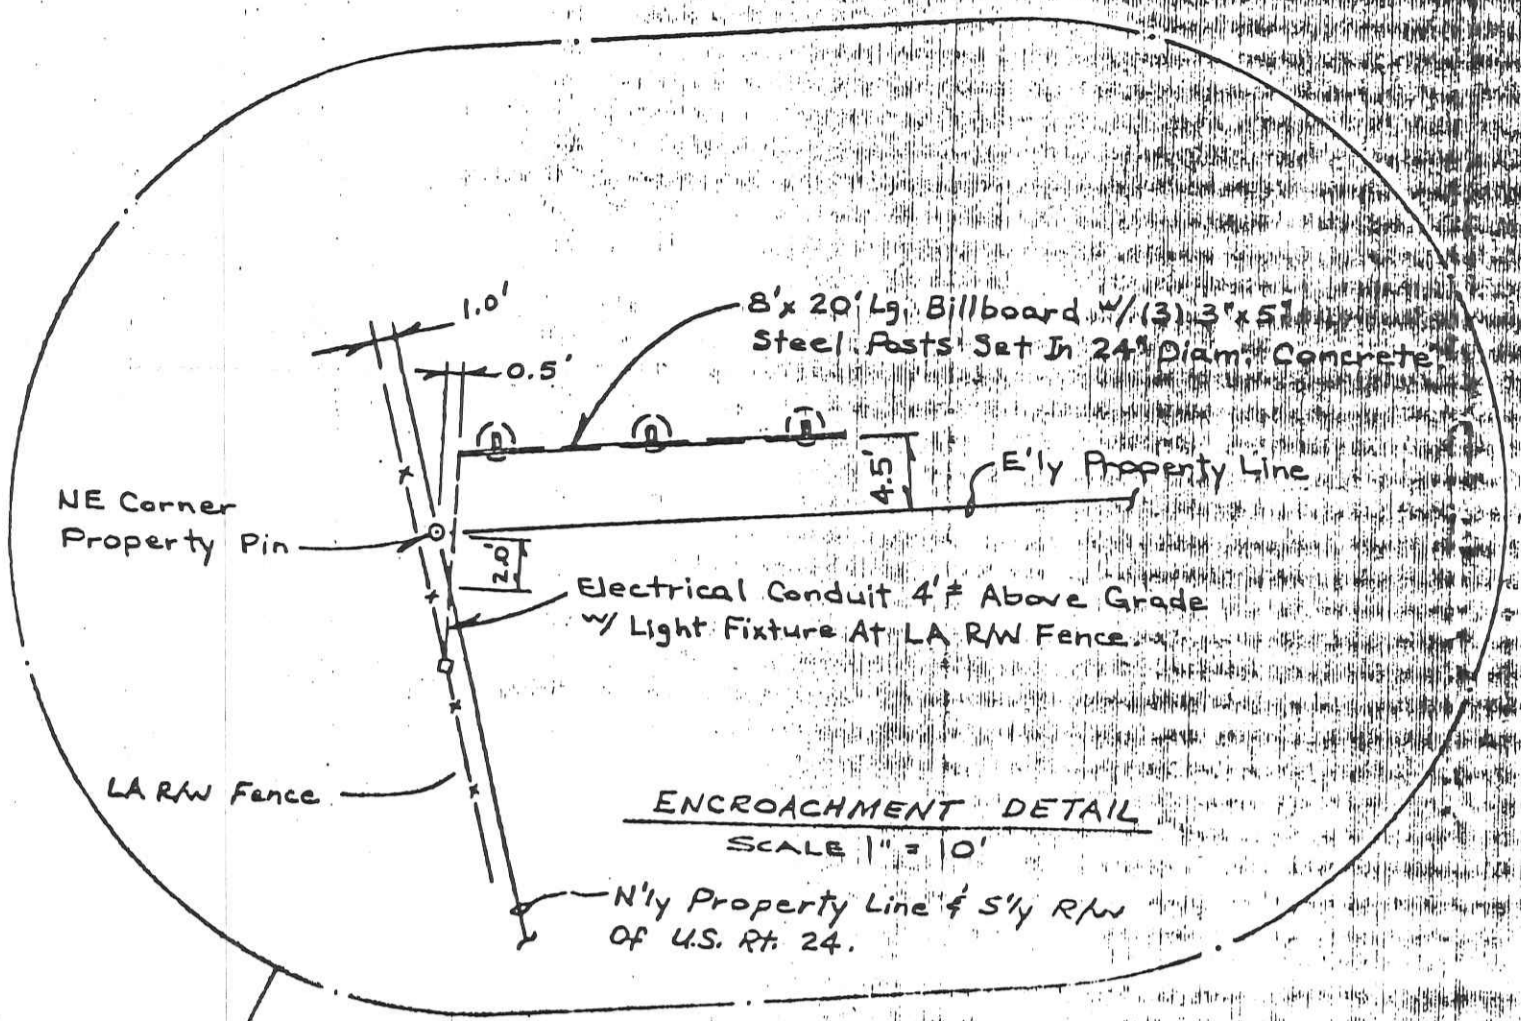 1.0'
0.5'
8' x 20' Lg. Billboard w/ (3) 3" x 5"
Steel Posts Set In 24" Diam. Concrete
4.5'
E'ly Property Line
NE Corner
Property Pin
2.0'
Electrical Conduit 4'± Above Grade
w/ Light Fixture At LA R/W Fence.
LA R/W Fence
ENCROACHMENT DETAIL
SCALE 1" = 10'
N'ly Property Line & S'ly R/W
Of U.S. Rt. 24.